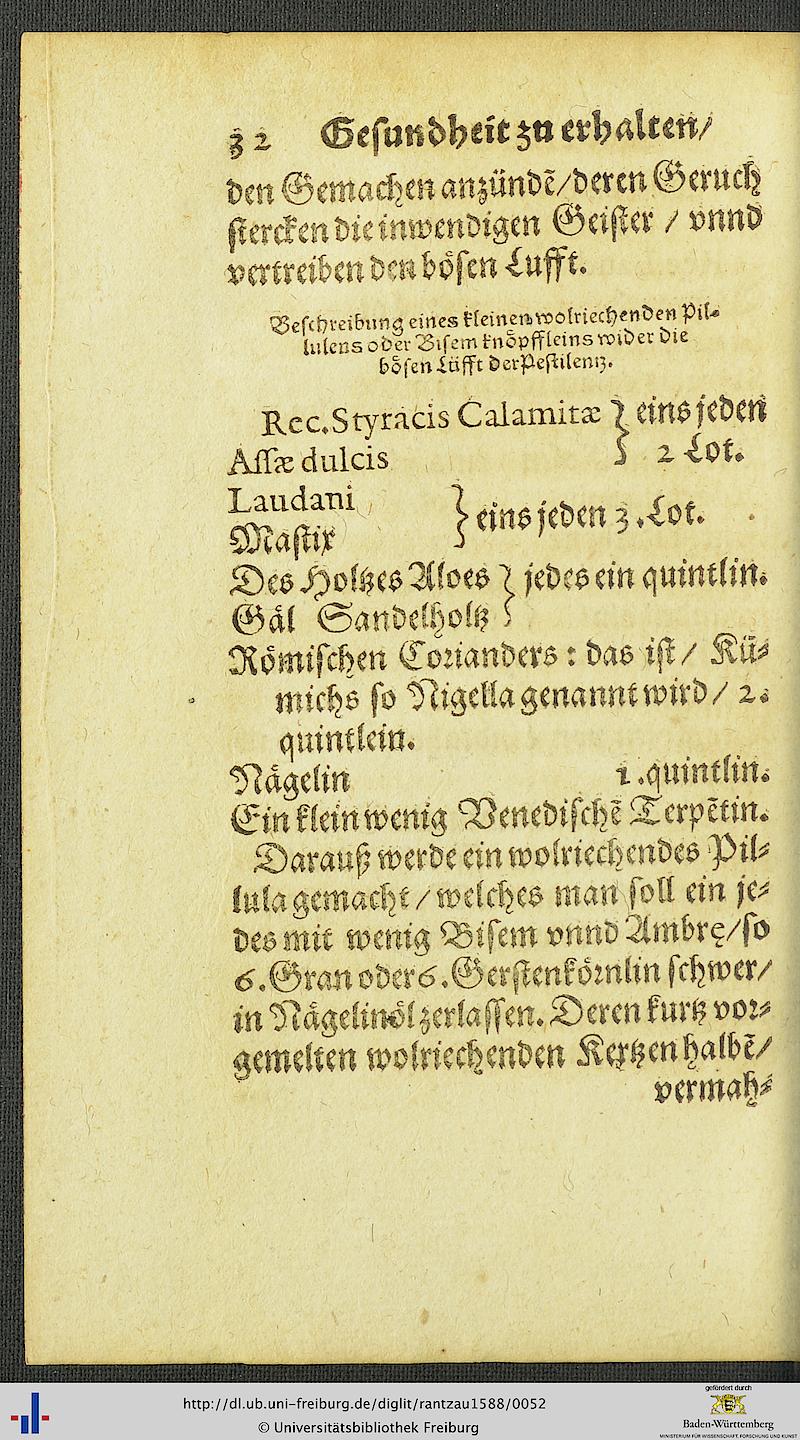 32 Gesundheit zu erhalten/
den Gemachen anzündē/deren Geruch
stercken die inwendigen Geister / vnnd
vertreiben den bösen Lufft.
Beschreibung eines kleinen wolriechenden Pil⸗
lulens oder Bisem knöpffleins wider die
bösen Lüfft der Pestilentz.
Rec. Styracis Calamitæ } eins jeden
Assæ dulcis } 2 Lot.
Laudani
Mastix } eins jeden 3. Lot.
Des Holtzes Aloes } jedes ein quintlin.
Gäl Sandelholtz
Römischen Corianders : das ist/ Kü⸗
michs so Nigella genannt wird/ 2.
quintlein.
Nägelin 1. quintlin.
Ein klein wenig Venedischē Terpētin.
Darauß werde ein wolriechendes Pil⸗
lula gemacht/ welches man soll ein je⸗
des mit wenig Bisem vnnd Ambrę/so
6. Gran oder 6. Gerstenkörnlin schwer/
in Nägelinöl zerlassen. Deren kurtz vor⸗
gemelten wolriechenden Kertzen halbē/
vermah⸗
http://dl.ub.uni-freiburg.de/diglit/rantzau1588/0052
© Universitätsbibliothek Freiburg
gefördert durch
Baden-Württemberg
MINISTERIUM FÜR WISSENSCHAFT, FORSCHUNG UND KUNST